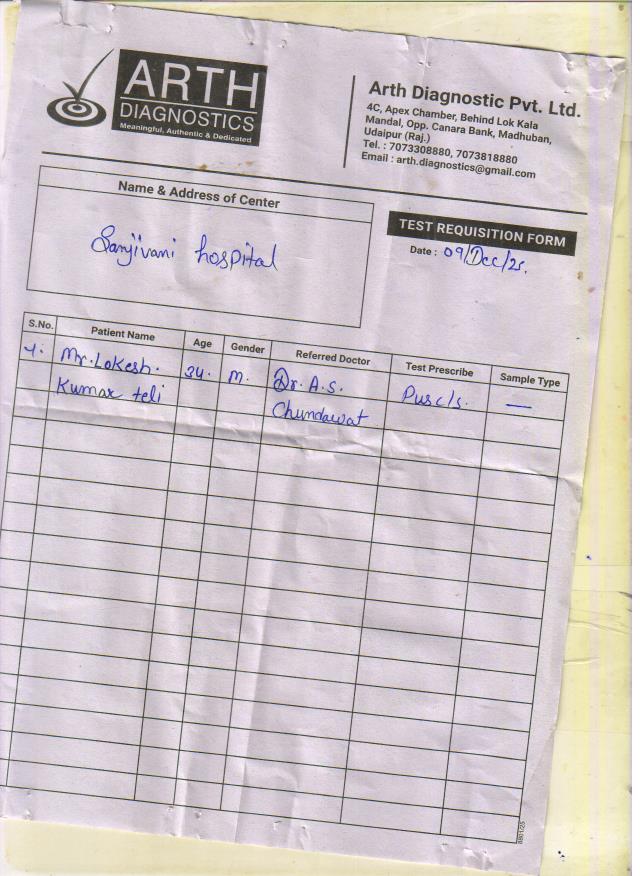 ARTH
DIAGNOSTICS
Meaningful, Authentic & Dedicated
Arth Diagnostic Pvt. Ltd.
4C, Apex Chamber, Behind Lok Kala
Mandal, Opp. Canara Bank, Madhuban,
Udaipur (Raj.)
Tel. : 7073308880, 7073818880
Email : arth.diagnostics@gmail.com
Name & Address of Center
Sanjivani hospital
TEST REQUISITION FORM
Date : 09/Dec/25.
S.No. Patient Name Age Gender Referred Doctor Test Prescribe Sample Type
1. Mr. Lokesh. 34. M. Dr. A.S. Pus c/s. —
Kumar teli Chundawat